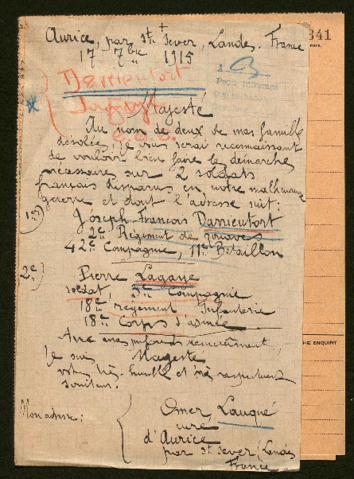 Aurice, par St Sever, Landes. France
17 7bre 1915
Darrieutort
Majesté
Au nom de deux de mes familles
désolées, je vous serai reconnaissant
de vouloir bien faire les démarches
nécessaires sur 2 soldats
français disparus en notre malheureuse
guerre et dont l'adresse suit:
1º) Joseph François Darrieutort
2e Régiment de zouaves
42e Compagnie, 11e Bataillon
2º) Pierre Lagaye
soldat 3e Compagnie
18e régiment Infanterie
18e Corps d'armée.
Avec mes profonds remerciements,
Je suis, Majesté
votre très humble et très respectueux
serviteur:
Mon adresse: Omer Lauqué
curé
d'Aurice
par St Sever (Landes)
France
341
THE ENQUIRY